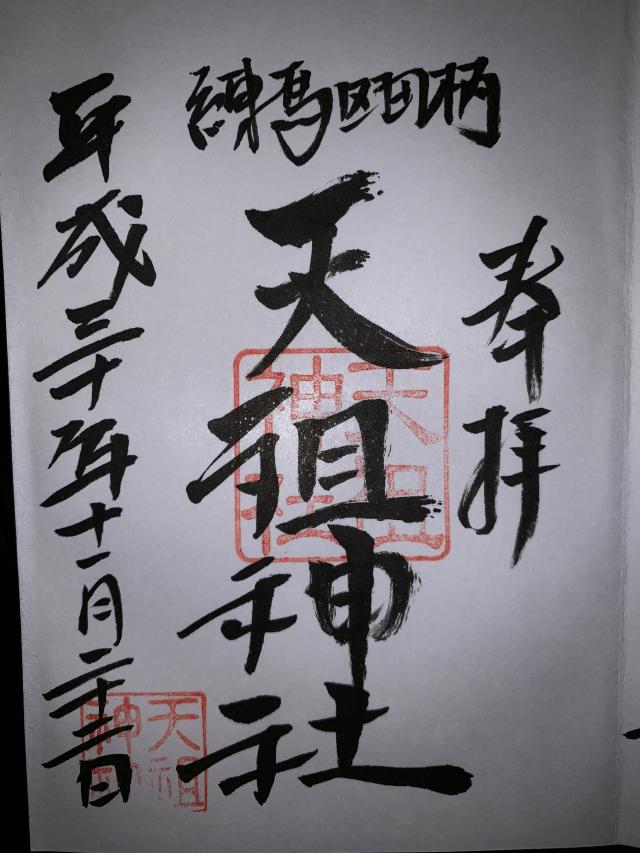 奉拝
練馬区田柄
天祖神社
天祖
神社
平成三十年十一月二十三日
天祖